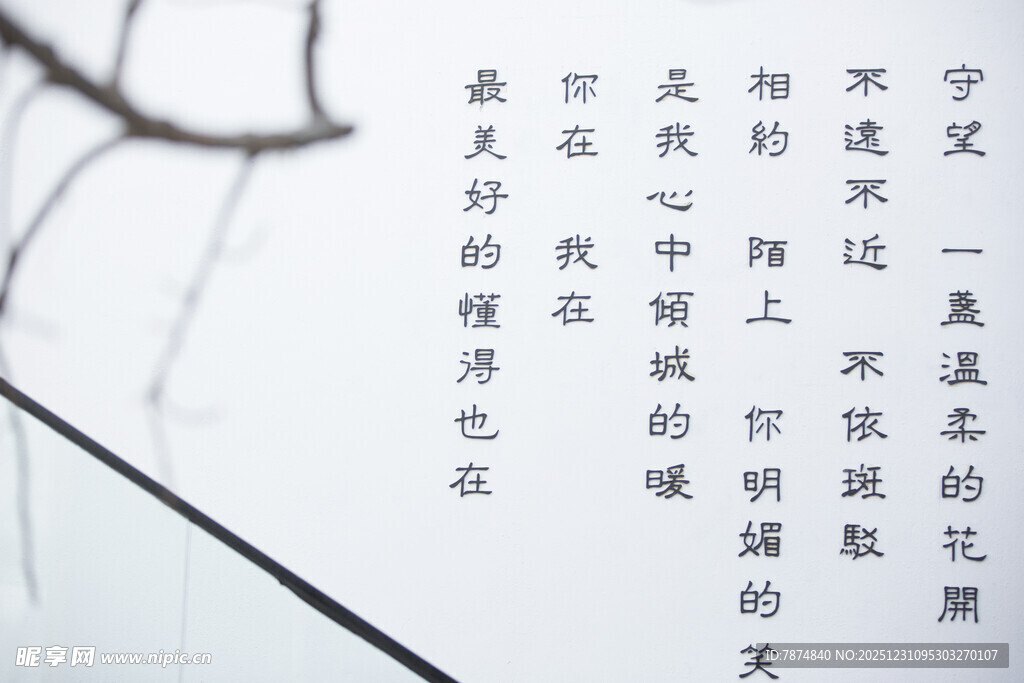 守望 一盞溫柔的花開
不遠不近 不依斑駁
相約 陌上 你明媚的笑
是我心中傾城的暖
你在 我在
最美好的懂得也在
昵享网 www.nipic.cn
ID:7874840 NO:20251231095303270107